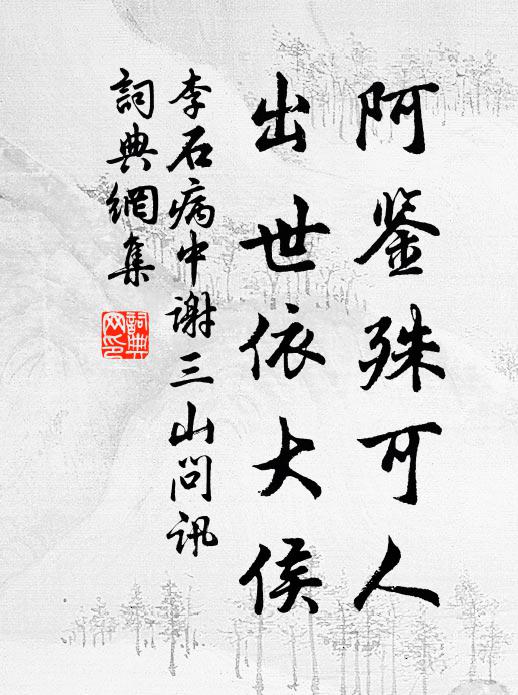 阿鉴殊可人
出世依大侯
李石病中谢三山問訊
詞典網集
詞典
网印